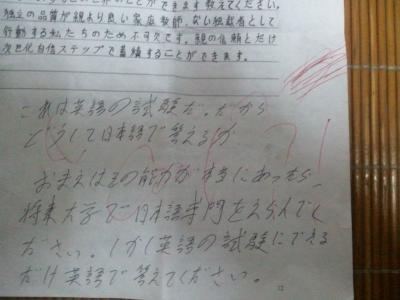 できます教えてください。
独立の品質が親より良い家庭教師、ない独裁者として
行動する私たちのため不可欠です。親の信頼とだけ
次世代自信ステップで蓄積することができます。
これは英語の試験だ。だから
どうして日本語で答えるか
おまえはその能力が本当にあったら、
将来大学で日本語専門をえらんでく
ださい。しかし英語の試験にできる
だけ英語で答えてください。